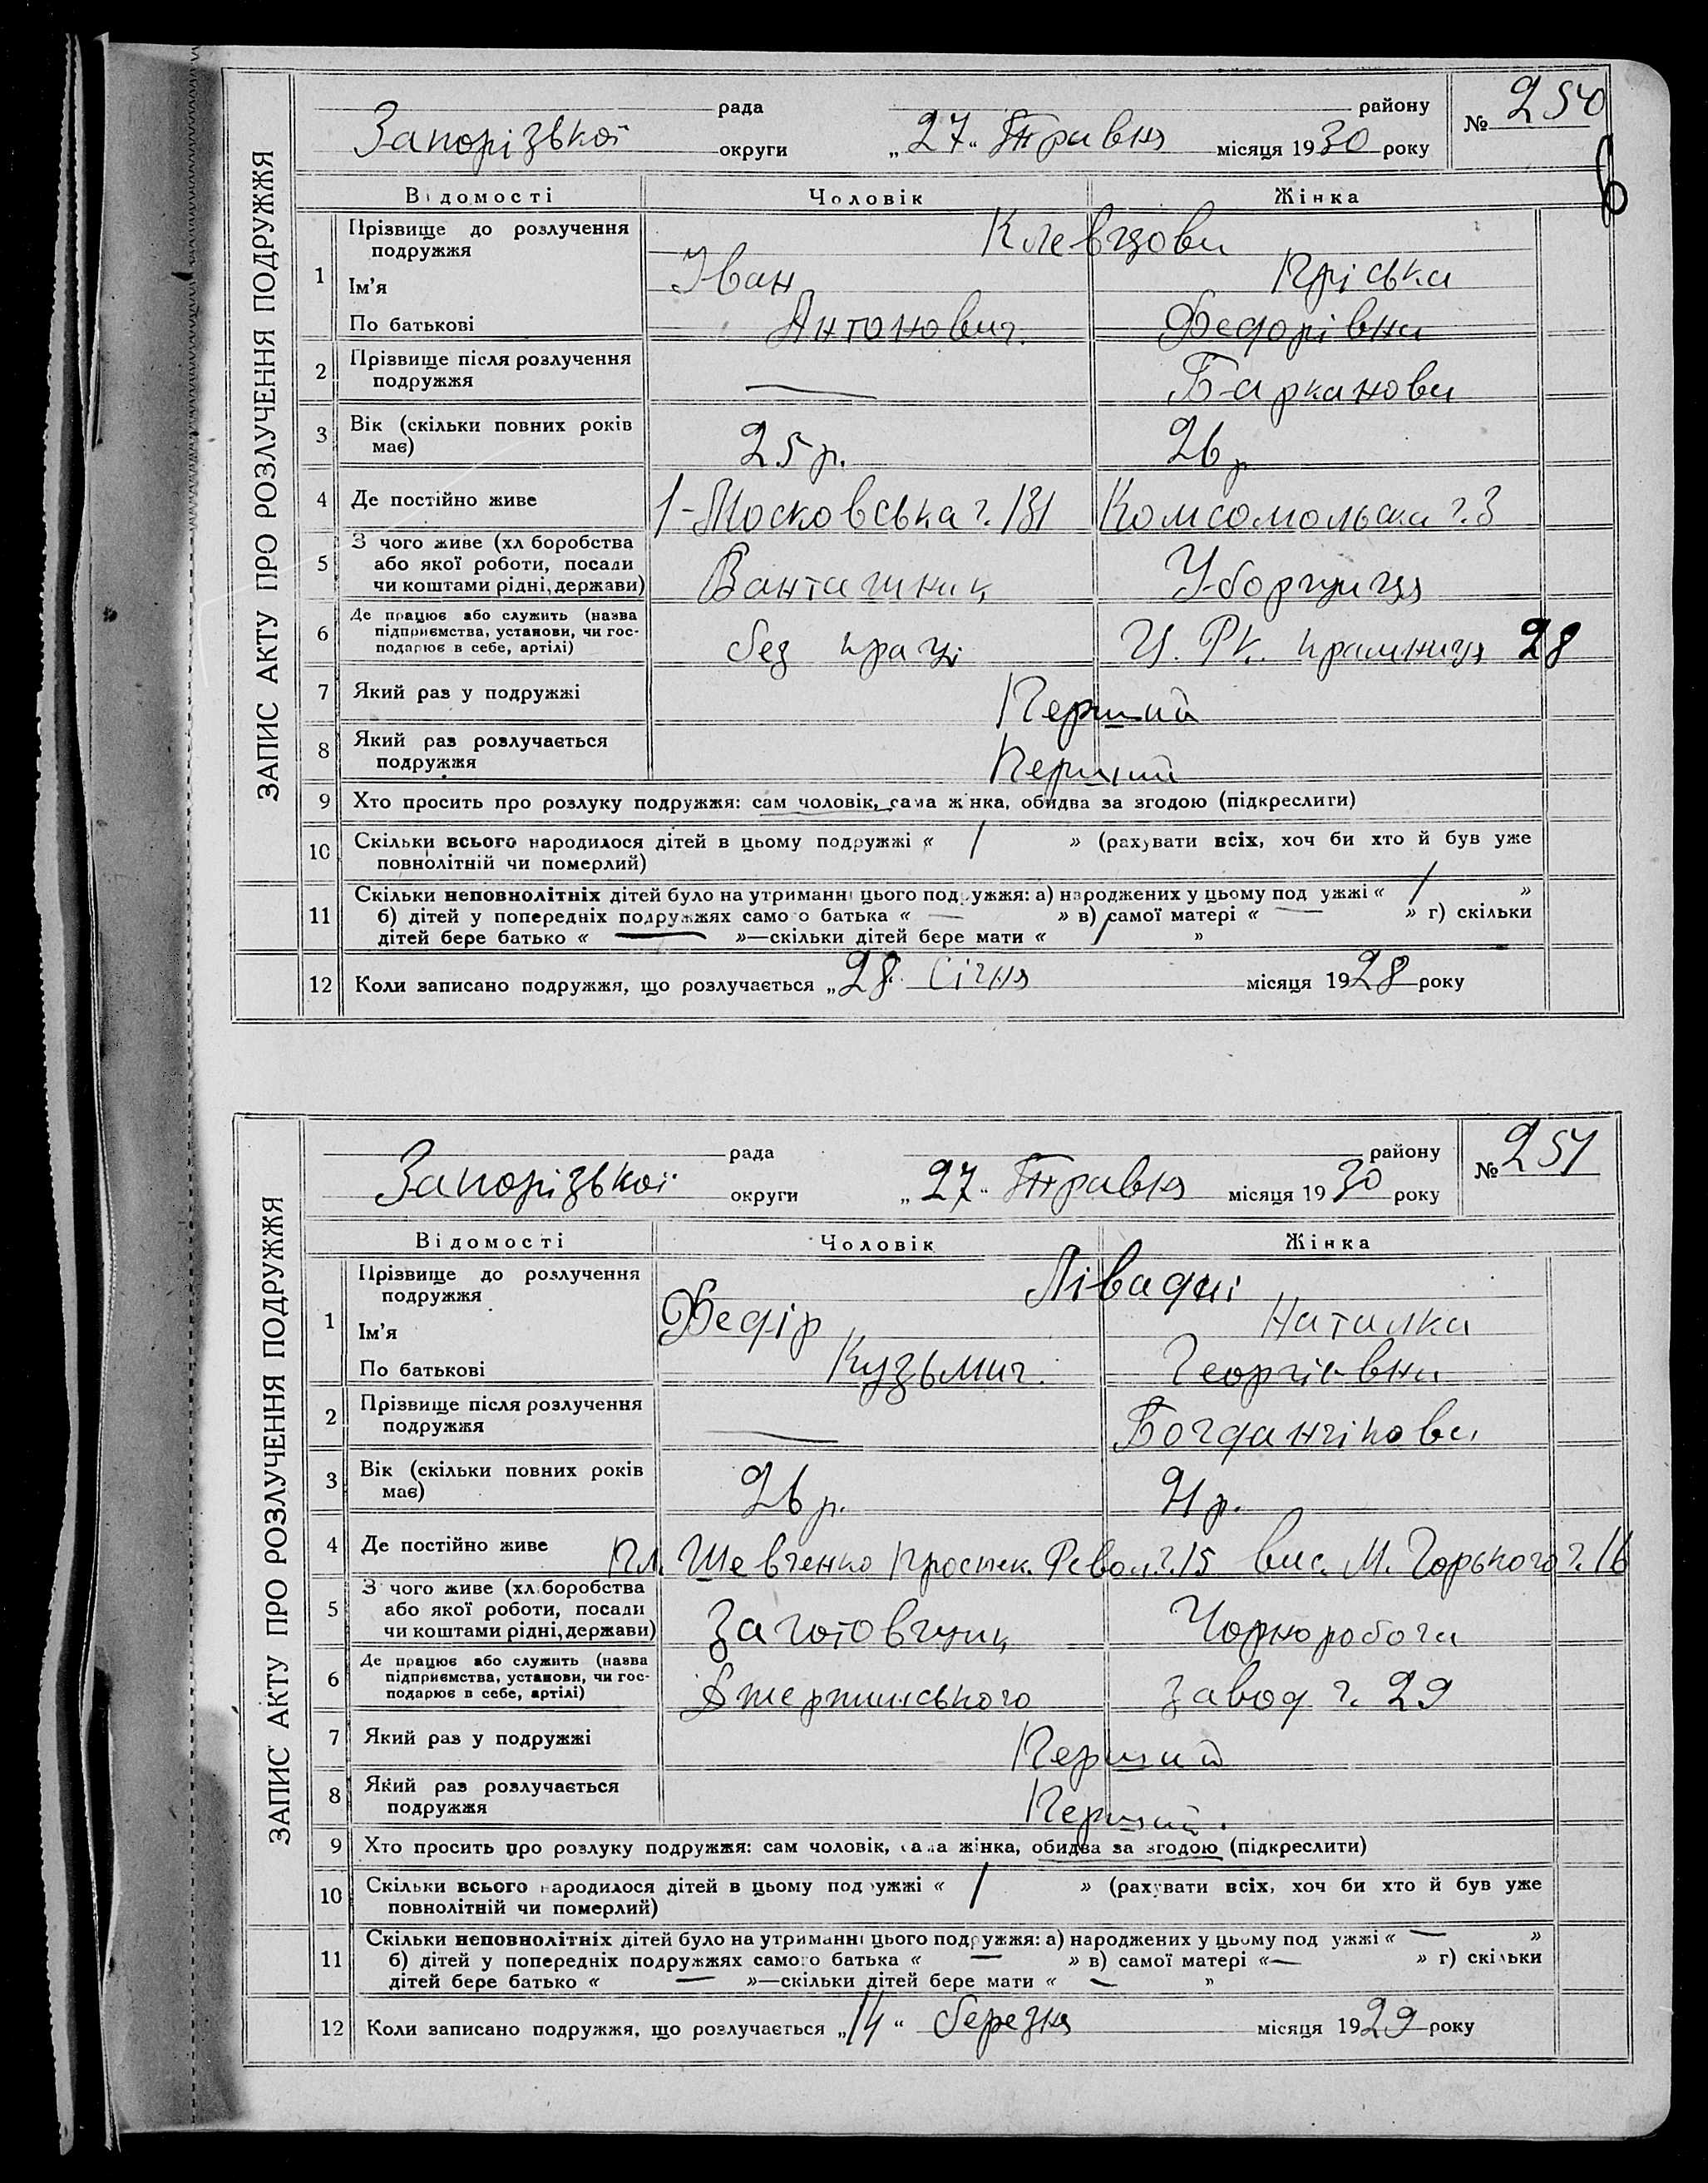 ЗАПИС АКТУ ПРО РОЗЛУЧЕННЯ ПОДРУЖЖЯ
рада району
№ 250
Запорізької округи „27“ Травня місяця 1930 року
6
Відомості Чоловік Жінка
1 Прізвище до розлучення подружжя Клевцови
Ім'я Іван Пріська
По батькові Антонович. Федорівна
2 Прізвище після розлучення подружжя — Барканова
3 Вік (скільки повних років має) 25 р. 26 р
4 Де постійно живе 1-Московська ч. 131 Комсомольська ч. 3
5 З чого живе (хл боробства
або якої роботи, посади
чи коштами рідні, держави) Вантажник Уборщиця
6 Де працює або служить (назва
підприємства, установи, чи гос-
подарює в себе, артілі) без праці Ц. Р.К. крамниця 28
7 Який раз у подружжі Перший
8 Який раз розлучається подружжя Перший
9 Хто просить про розлуку подружжя: сам чоловік, сама жінка, обидва за згодою (підкреслити)
10 Скільки всього народилося дітей в цьому подружжі « 1 » (рахувати всіх, хоч би хто й був уже
повнолітній чи померлий)
11 Скільки неповнолітніх дітей було на утриманні цього подружжя: а) народжених у цьому подружжі « 1 »
б) дітей у попередніх подружжях самого батька « — » в) самої матері « — » г) скільки
дітей бере батько « — »—скільки дітей бере мати « 1 »
12 Коли записано подружжя, що розлучається „28“ Січня місяця 1928 року
ЗАПИС АКТУ ПРО РОЗЛУЧЕННЯ ПОДРУЖЖЯ
рада району
№ 251
Запорізької округи „27“ Травня місяця 1930 року
Відомості Чоловік Жінка
1 Прізвище до розлучення подружжя Лівадні
Ім'я Федір Наталка
По батькові Кузьмич. Георгієвна
2 Прізвище після розлучення подружжя — Богданчікова
3 Вік (скільки повних років має) 26 р. 21 р.
4 Де постійно живе Пл. Шевченко Проспек. Револ. ч. 15 вис. М. Горького ч. 16
5 З чого живе (хл.боробства
або якої роботи, посади
чи коштами рідні, держави) Заготовчщик Чорноробоча
6 Де працює або служить (назва
підприємства, установи, чи гос-
подарює в себе, артілі) Джержинського завод ч. 29
7 Який раз у подружжі Перший
8 Який раз розлучається подружжя Перший.
9 Хто просить про розлуку подружжя: сам чоловік, сама жінка, обидва за згодою (підкреслити)
10 Скільки всього народилося дітей в цьому подружжі « 1 » (рахувати всіх, хоч би хто й був уже
повнолітній чи померлий)
11 Скільки неповнолітніх дітей було на утриманні цього подружжя: а) народжених у цьому подружжі « — »
б) дітей у попередніх подружжях самого батька « — » в) самої матері « — » г) скільки
дітей бере батько « — »—скільки дітей бере мати « — »
12 Коли записано подружжя, що розлучається „14“ березня місяця 1929 року